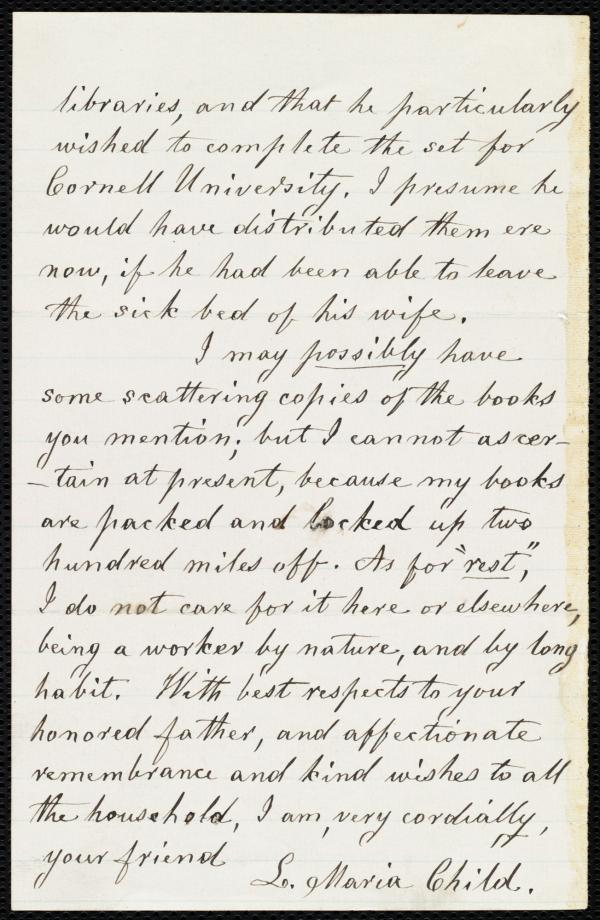 libraries, and that he particularly
wished to complete the set for
Cornell University. I presume he
would have distributed them ere
now, if he had been able to leave
the sick bed of his wife.
I may possibly have
some scattering copies of the books
you mention; but I cannot ascer-
-tain at present, because my books
are packed and locked up two
hundred miles off. As for "rest,"
I do not care for it here or elsewhere,
being a worker by nature, and by long
habit. With best respects to your
honored father, and affectionate
remembrance and kind wishes to all
the household, I am, very cordially,
your friend
L. Maria Child.